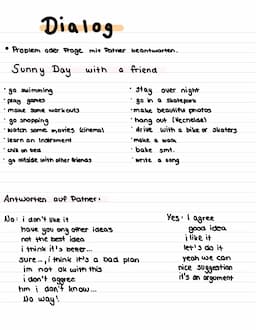 Dialog
* Problem oder Frage mit Patner beantworten.
Sunny Day with a friend
· go swimming
· play games
· make some workouts
· go shopping
· watch some movies (cinema)
· learn an instrument
· chill on sea
· go outside with other friends
· stay over night
· go in a skatepark
· make beautiful photos
· hang out (Vecnelde)
· drive with a bike or skaters
· make a walk
· bake smt.
· write a song
Antworten auf Patner:
No: i don't like it
have you any other ideas
not the best idea
i think it's better...
sure..., i think it's a bad plan
im not ok with this
i don't aggree
hm i don't know...
No way!
Yes: I agree
good idea
i like it
let's do it
yeah we can
nice suggestion
it's an argument